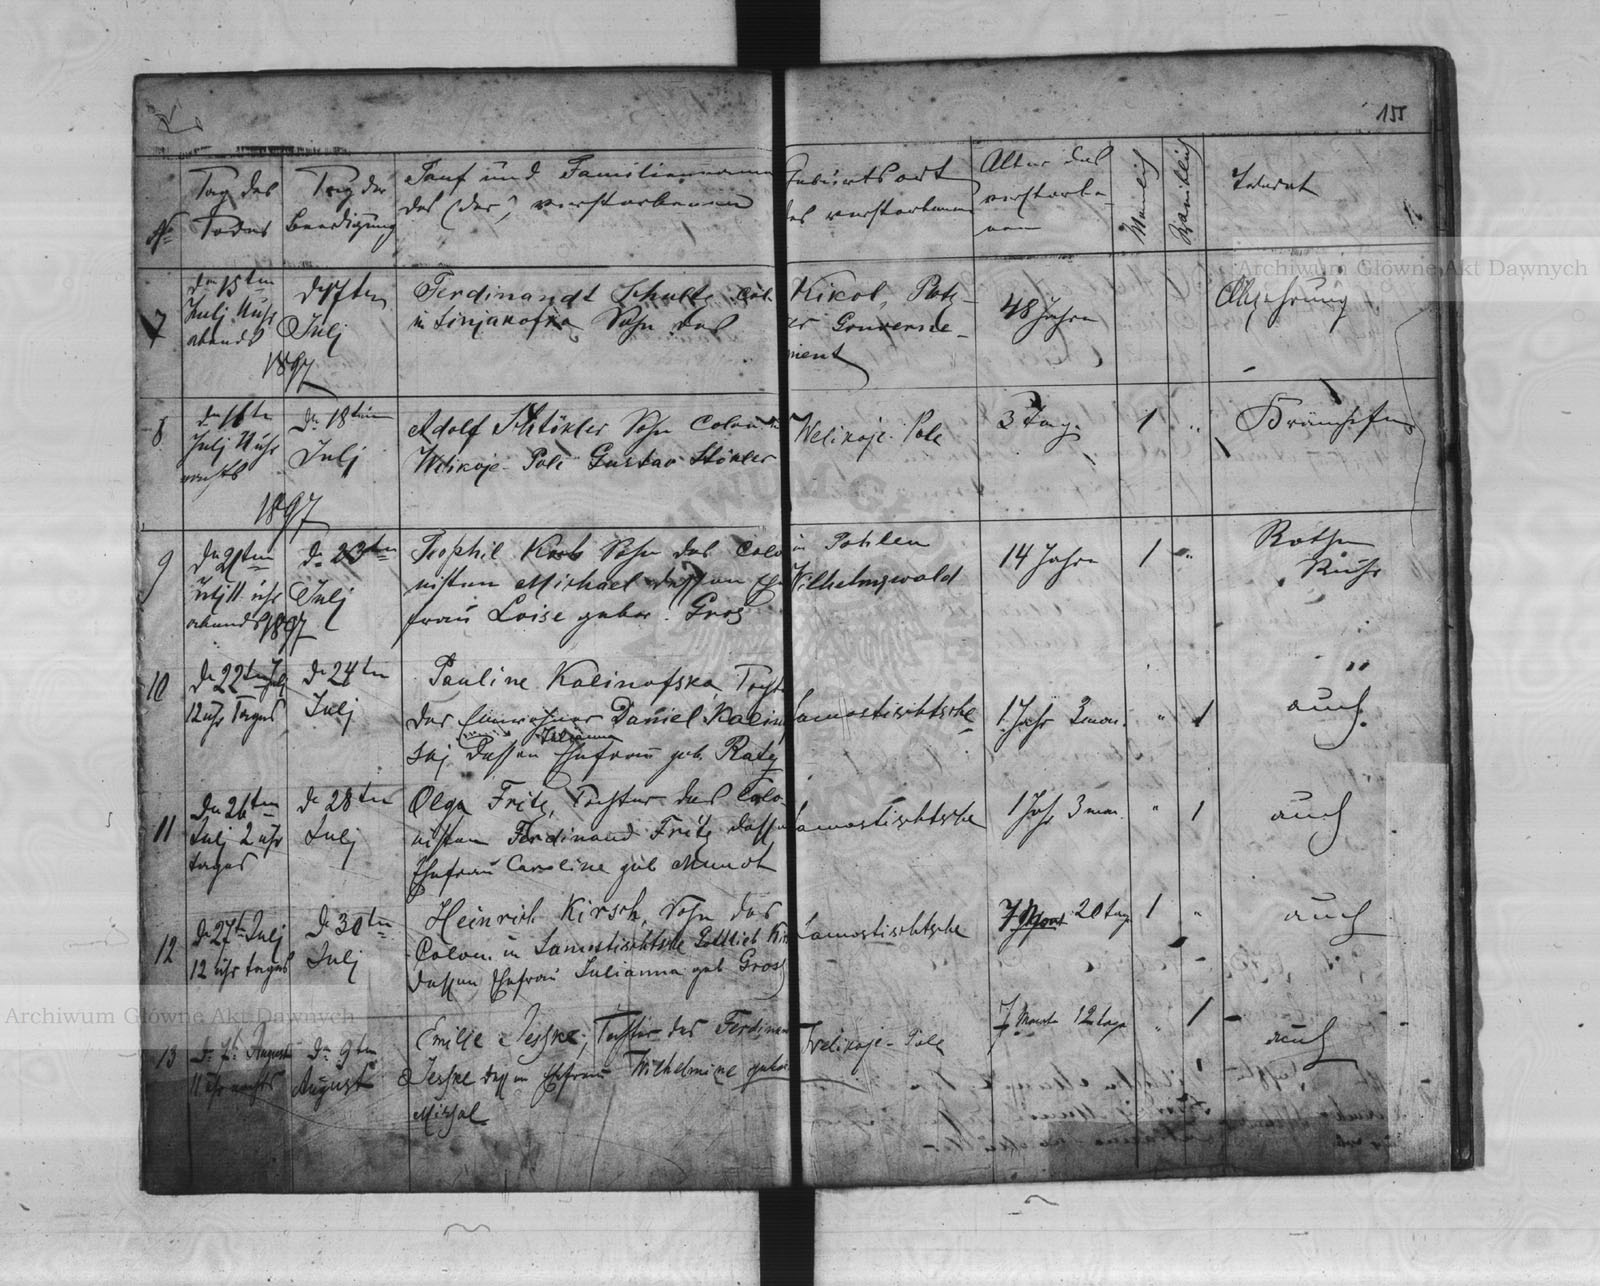 155
No
Tag des Todes
Tag der Beerdigung
Tauf und Familienname
des (der) verstorbenen
Geburtsort
des verstorbenen
Alter des
verstorbe-
nen
Männlich
Weiblich
7
den 15ten
Julj 11 uhr
abends
17ten
Julj
1897
Ferdinandt Schultz Col.
in Sinjakofka Sohn des
Nikol,
Gouverne-
ment
48 Jahre
Abzehrung
8
den 16ten
Julj 11 uhr
nachts
den 18ten
Julj
1897
Adolf Stökler Sohn Colon
Welikoje-Pole Gustav Stökler
Welikoje-Pole
3 Tage
1
"
9
den 21ten
Julj 11 uhr
abends 1897
den 23ten
Julj
Teophil Korb Sohn des Colo
nisten Michael dessen Eh
frau Loise gebor. Gros
in Pohlen
Wilhelmswald
14 Jahre
1
"
Rothe
Ruhr
10
den 22ten Julj
12 uhr Tages
den 24ten
Julj
Pauline Kalinofska, Tocht
der Einwohner Daniel Kalinof
skj dessen Julianna Ehefrau geb. Ratz
Samostischtsche
1 Jahr 3 mon.
"
1
" auch
11
den 26ten
Julj 2 uhr
tages
den 28ten
Julj
Olga Fritz, Tochter des Colo-
nisten Ferdinand Fritz dessen
Ehefrau Caroline geb Mundt
Samostischtsche
1 Jahr 3 mon.
"
1
auch
12
den 27ten Julj
12 uhr tages
den 30ten
Julj
Heinrich Kirsch, Sohn des
Colon. in Samostischtsche Gottlieb Kir
dessen Ehefrau Julianna geb Gross
Samostischtsche
7 Monat 20 tage
1
"
auch
13
den 7ten August
11 uhr nachts
den 9ten
August
Emilje Jeschke; Tochter des Ferdinan
Jeschke dessen Ehefrau Wilhelmine gebor
Welikoje-Pole
7 Monat 12 tage
"
1
auch
Archiwum Główne Akt Dawnych
Archiwum Główne Akt Dawnych